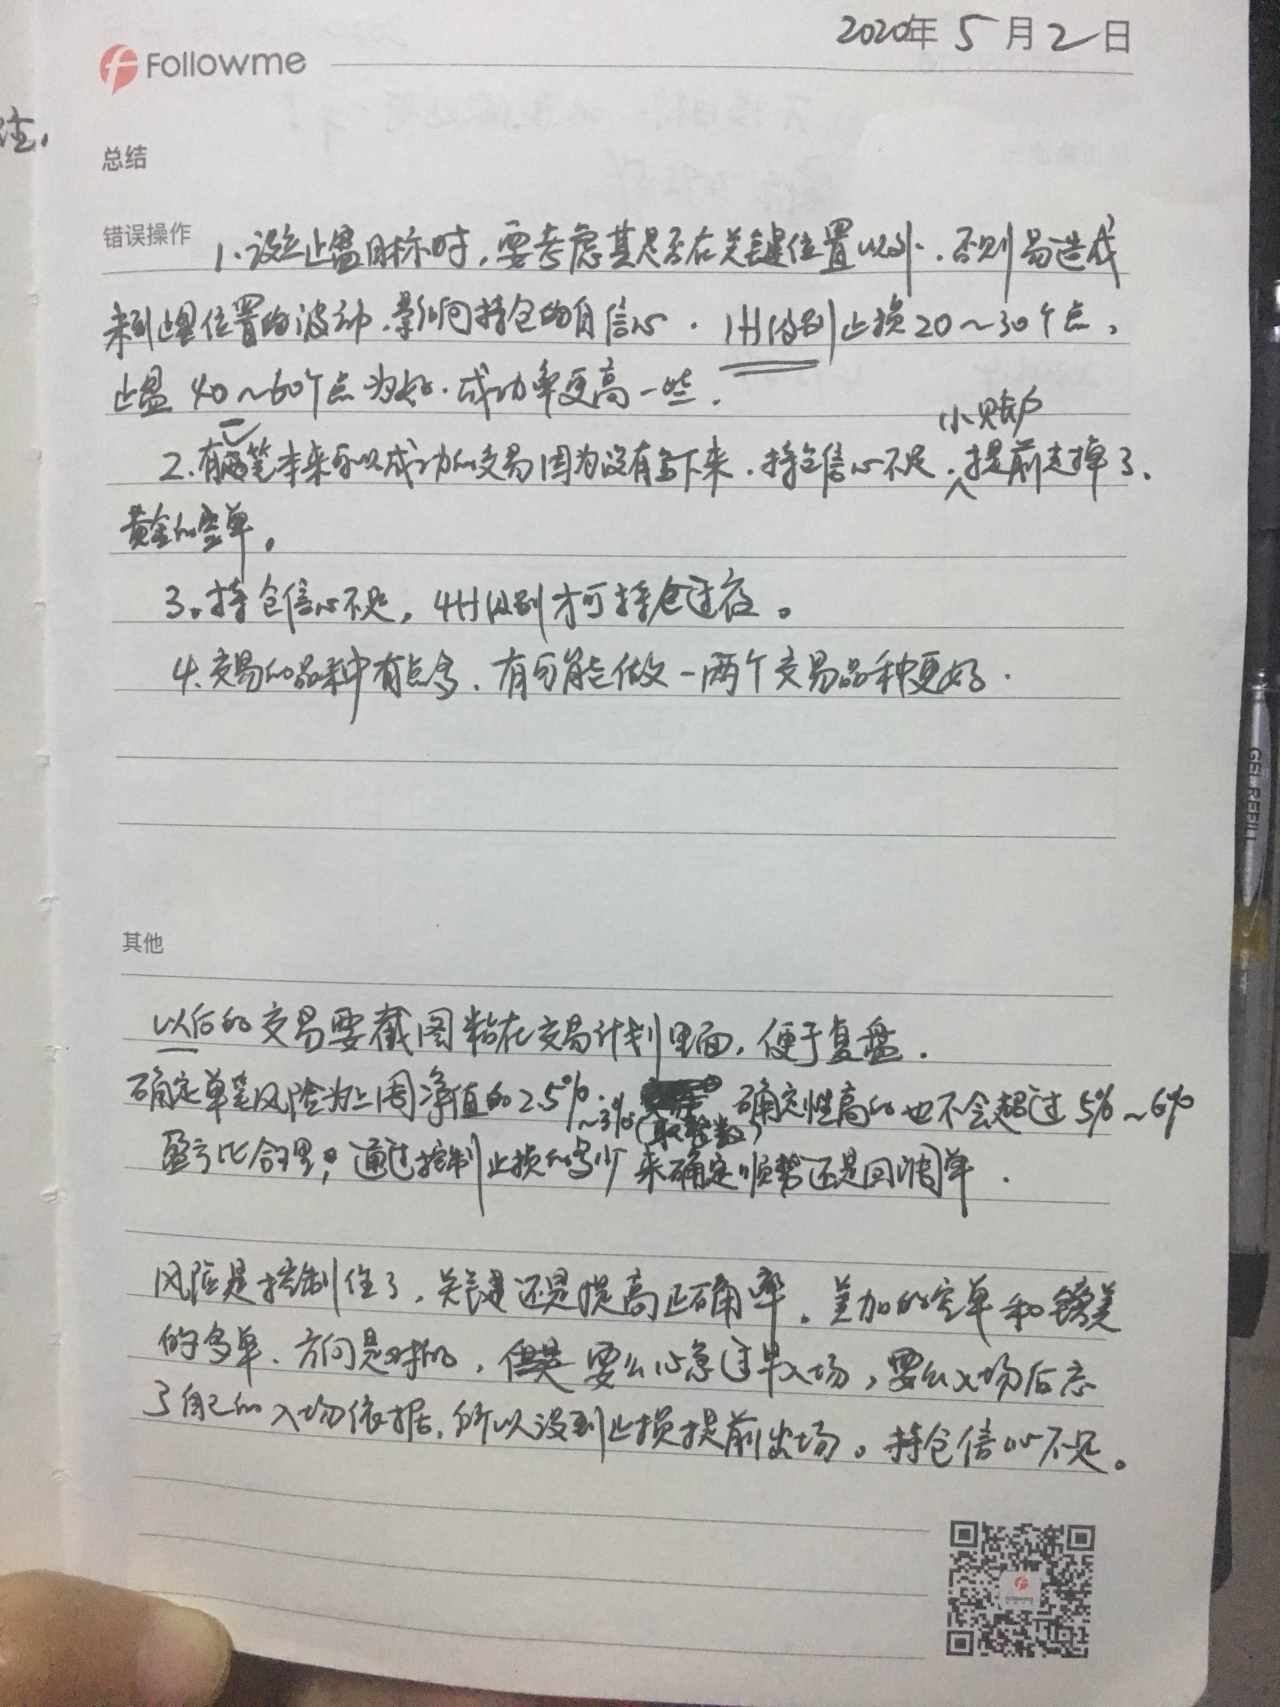 2020年5月2日
Followme
注.
总结
错误操作
1.设立止盈目标时,要考虑其是否在关键位置以外.否则易造成
未到止盈位置的波动.影响持仓的自信心.1H级别止损20~30个点,
止盈40~60个点为好.成功率更高一些.
小账户
2.有两笔本来可以成功的交易因为没有拿下来.持仓信心不足.提前走掉了.
黄金的空单。
3.持仓信心不足,4H级别才可持仓过夜。
4.交易的品种有点多.有可能做一两个交易品种更好.
其他
以后的交易要截图粘在交易计划里面,便于复盘.
确定单笔风险为上周净值的2.5%.确定性高的也不会超过5%~6%
~3%(取整数)
盈亏比合理;通过控制止损的多少来确定顺势还是回调单.
风险是控制住了,关键还是提高正确率.美加的空单和镑美
的多单.方向是对的,但是要么心急过早入场,要么入场后忘
了自己的入场依据,所以没到止损提前出场。持仓信心不足。
GEL REFILL